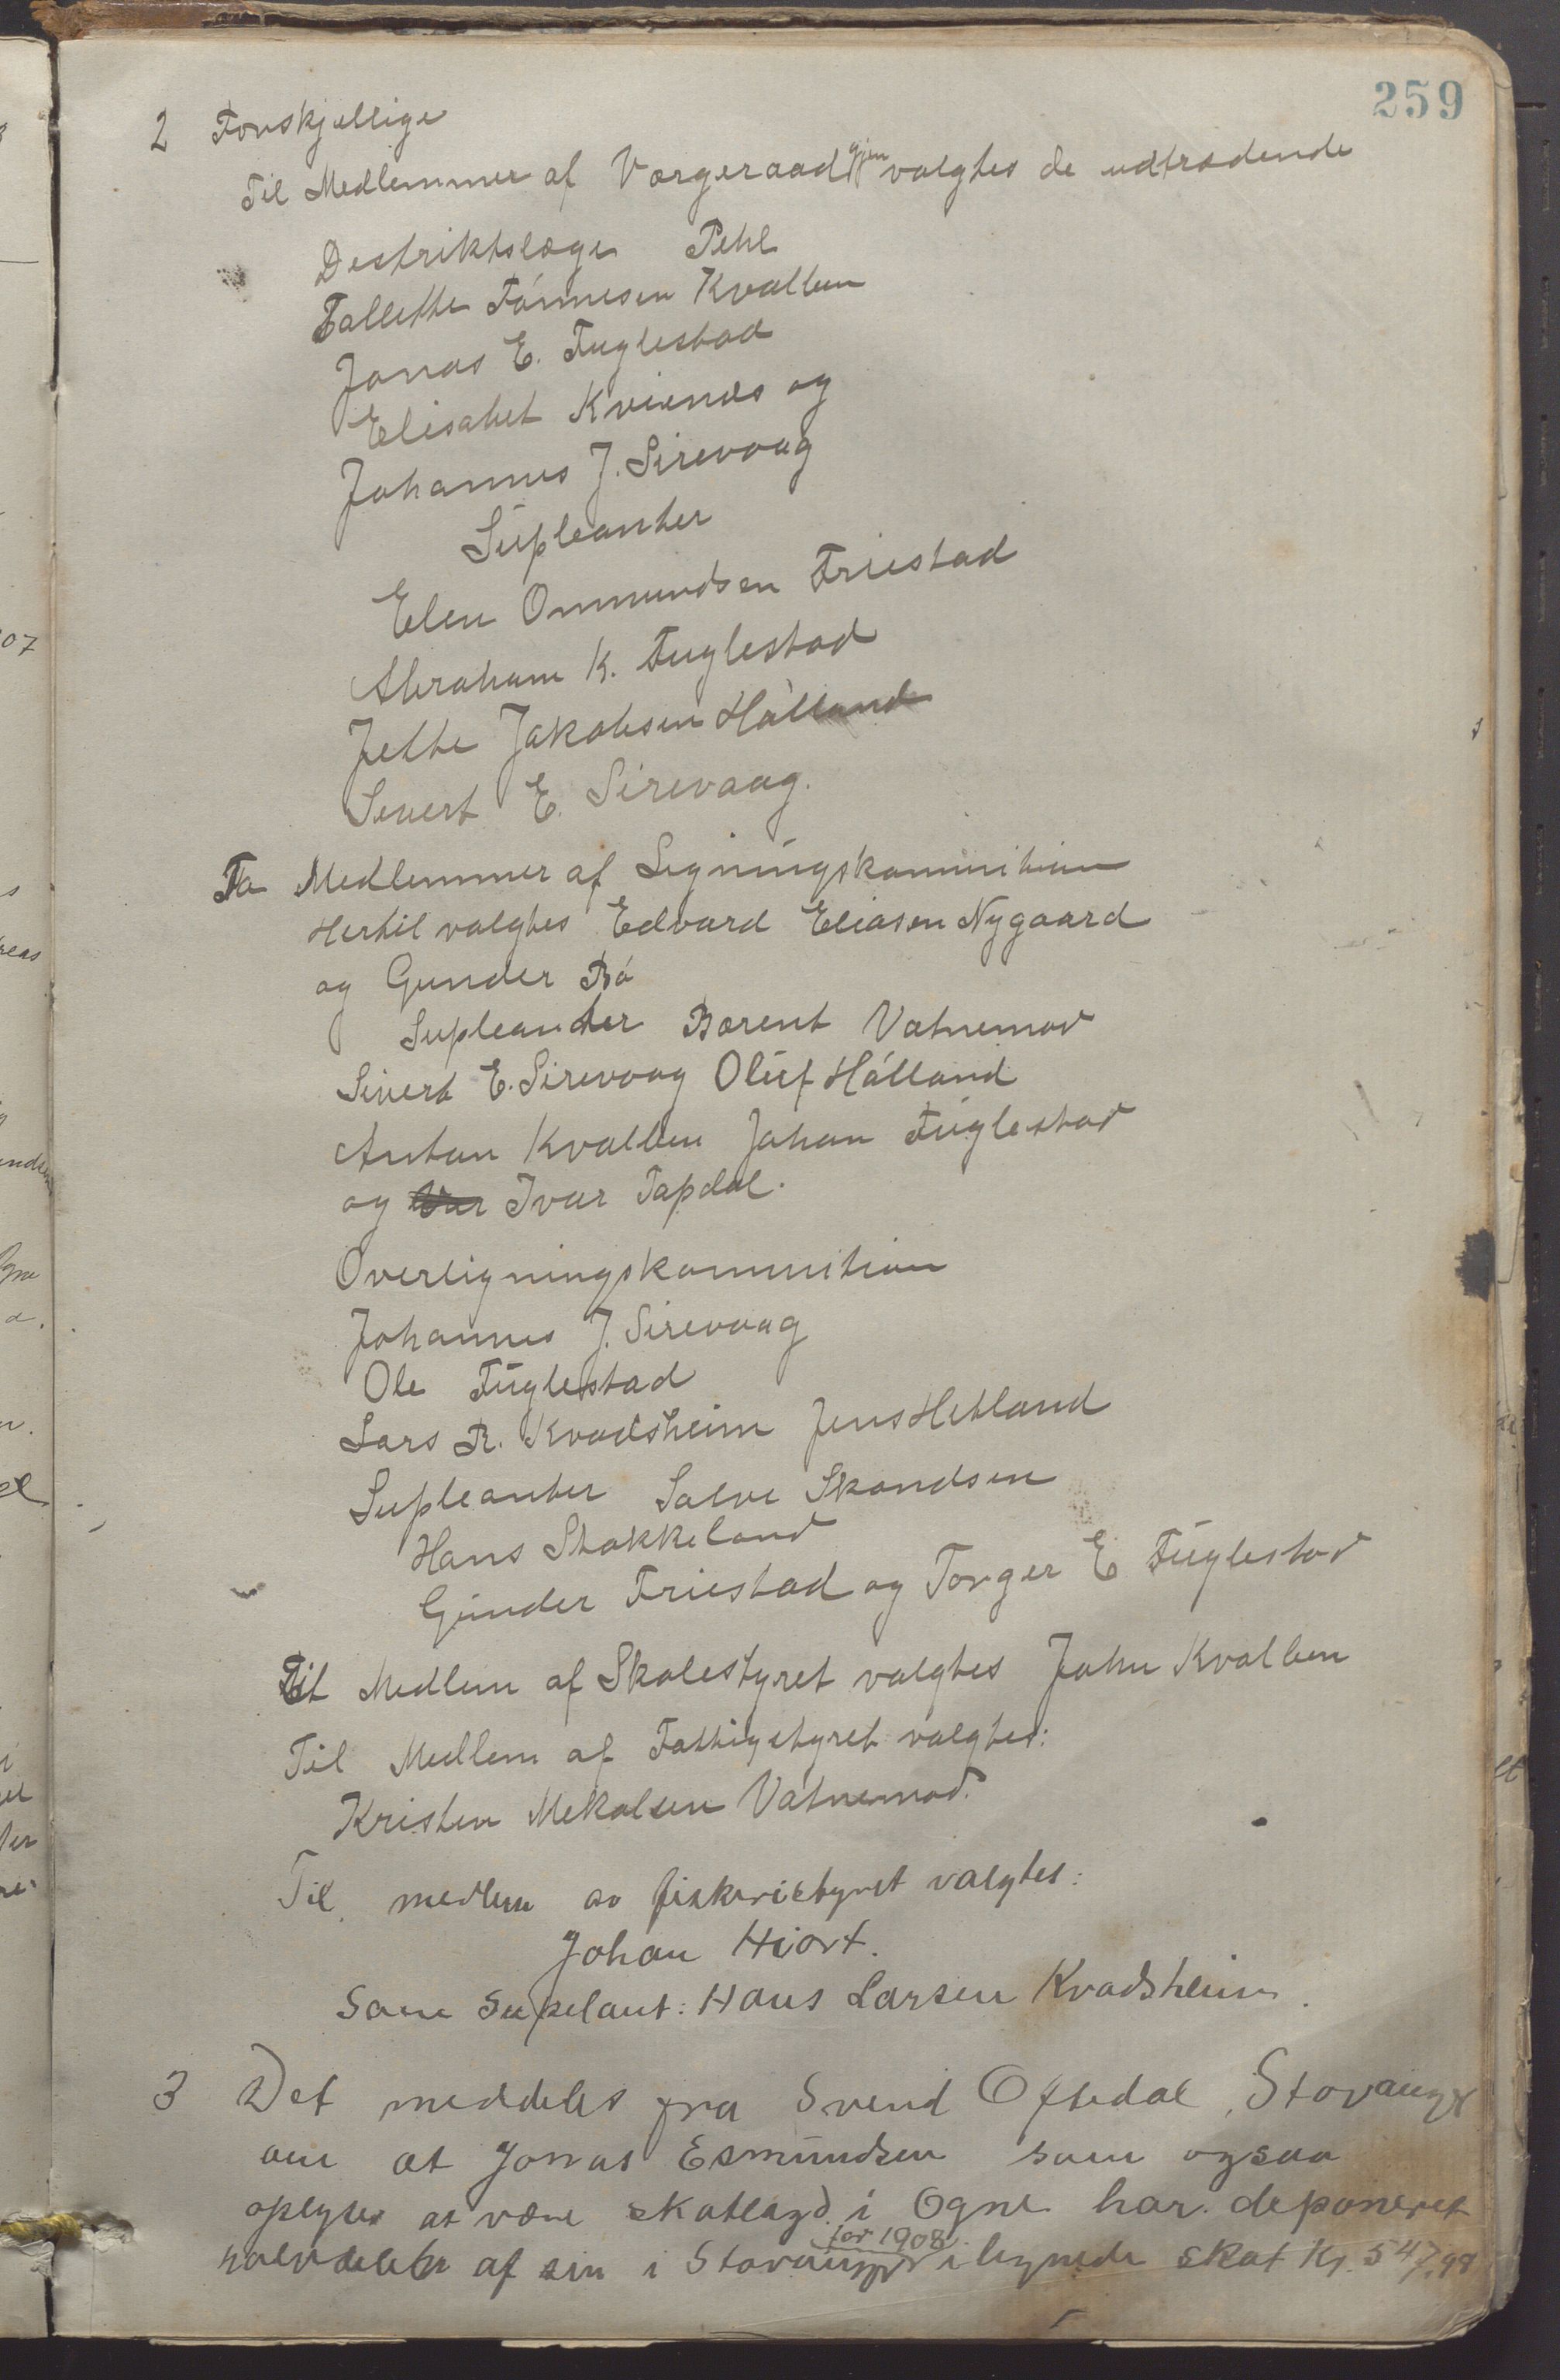 259
2 Forskjellige
Til Medlemmer afVærgeraad gjenvalgtes de udtrædende
Destriktslæge Pihl
Tallette Tønnesen Kvalbein
Jonas E. Fuglestad
Elisabet Kvienes og
Johannes J. Sirevaag
Supleanter
Elen Ommundsen Friestad
Abraham K. Fuglestad
Jette Jakobsen Hålland
Sivert E. Sirevaag.
To Medlemmer af Ligningskommitien
Hertil valgtes Edvard Eliasen Nygaard
og Gunder Bø
Supleanter Berent Vatnemod
Sivert E. Sirevaag Oluf Hålland
Anton Kvalbein Johan Fuglestad
og Ivar Tapdal.
Overligningskommitien
Johannes J. Sirevaag
Ole Fuglestad
Lars R. Kvadsheim Jens Hetland
Supleanter Salve Skandsen
Hans Stokkeland
Gunder Friestad og Torger E Fuglestad
Til Medlem af Skolestyret valgtes John Kvalbein
Til Medlem af Fattigstyret valgtes:
Kristen Mekalsen Vatnemod.
Til medlem av fiskeristyret valgtes:
Johan Hiort.
Som Suplant: Hans Larsen Kvadsheim.
3 Det meddeles fra Svend Oftedal, Stavanger
om at Jonas Esmundsen som ogsaa
oplyses at være skatlagd i Ogne har deponeret
halvdelen af sin i Stavanger for 1908 ilignede skat Kr. 547,98